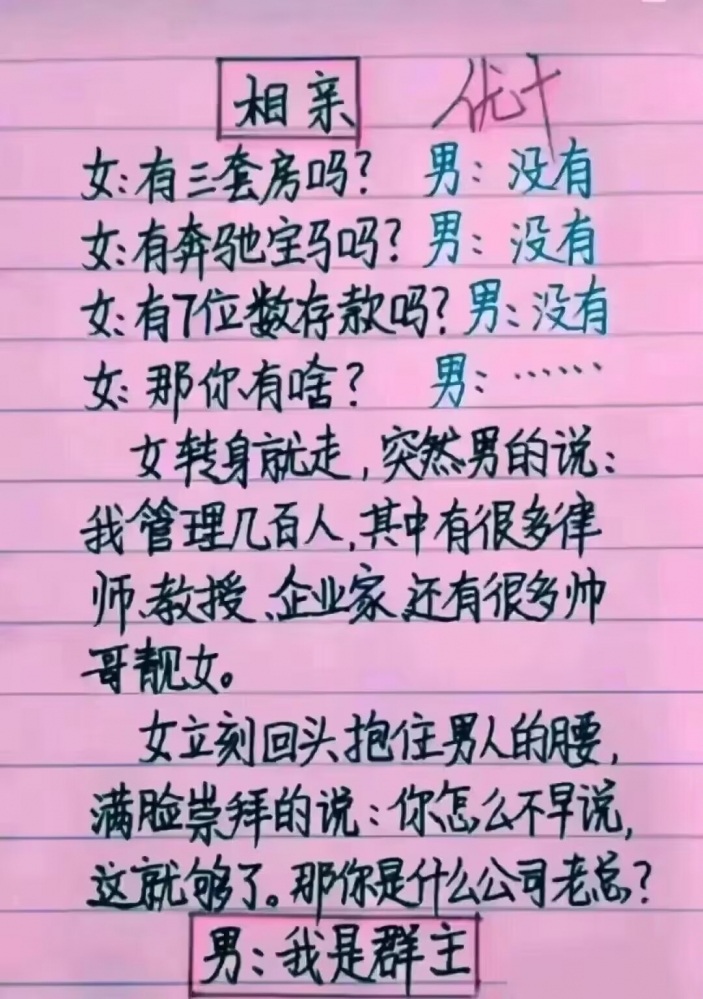 相亲 优+
女:有三套房吗? 男:没有
女:有奔驰宝马吗?男:没有
女:有7位数存款吗?男:没有
女:那你有啥? 男:……
女转身就走,突然男的说:
我管理几百人,其中有很多律
师、教授、企业家、还有很多帅
哥靓女。
女立刻回头抱住男人的腰,
满脸崇拜的说:你怎么不早说,
这就够了。那你是什么公司老总?
男:我是群主